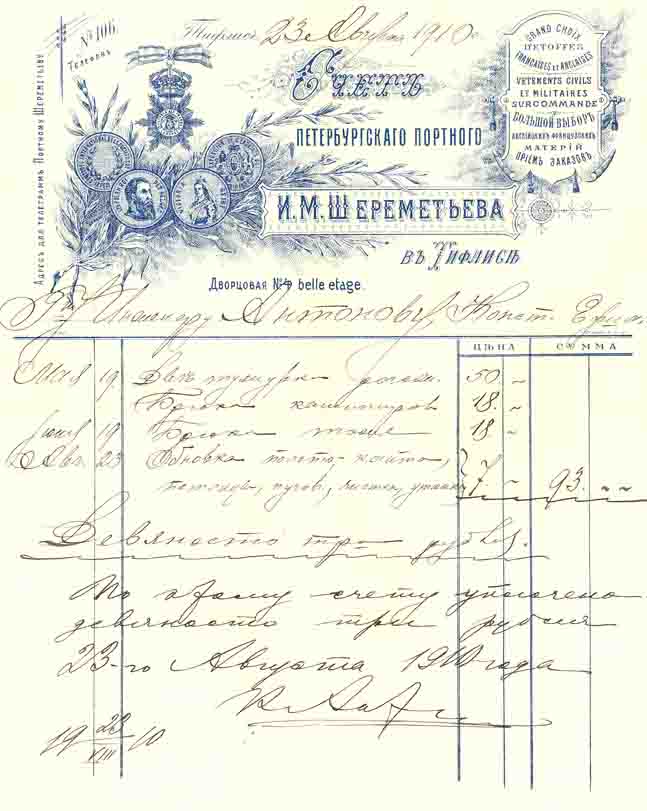 № 106
Телефонъ
Адресъ для телеграммъ Портному Шереметьеву
Тифлисъ 23 Августа 1910 г.
Счетъ
ПЕТЕРБУРГСКАГО ПОРТНОГО
И. М. ШЕРЕМЕТЬЕВА
ВЪ ТИФЛИСѢ
Дворцовая № 4 belle etage.
GRAND CHOIX
D'ETOFFES
FRANCAISES ET ANGLAISES
VETEMENTS CIVILS
ET MILITAIRES
SUR COMMANDE
БОЛЬШОЙ ВЫБОРЪ
АНГЛІЙСКИХЪ ФРАНЦУЗСКИХЪ
МАТЕРІЙ
ПРІЕМЪ ЗАКАЗОВЪ
Инженеру Антонову, Конст.
ЦѢНА СУММА
Мая 19 Двѣ тужурки 50. "
Брюки 18. "
Іюня 19 Брюки тоже 18 "
Авг. 23 Обновка пальто
7 " 93. " "
Девяносто три рубля.
По этому счету уплочено
девяносто три рубля
23-го Августа 1910 года
19 23/VIII 10